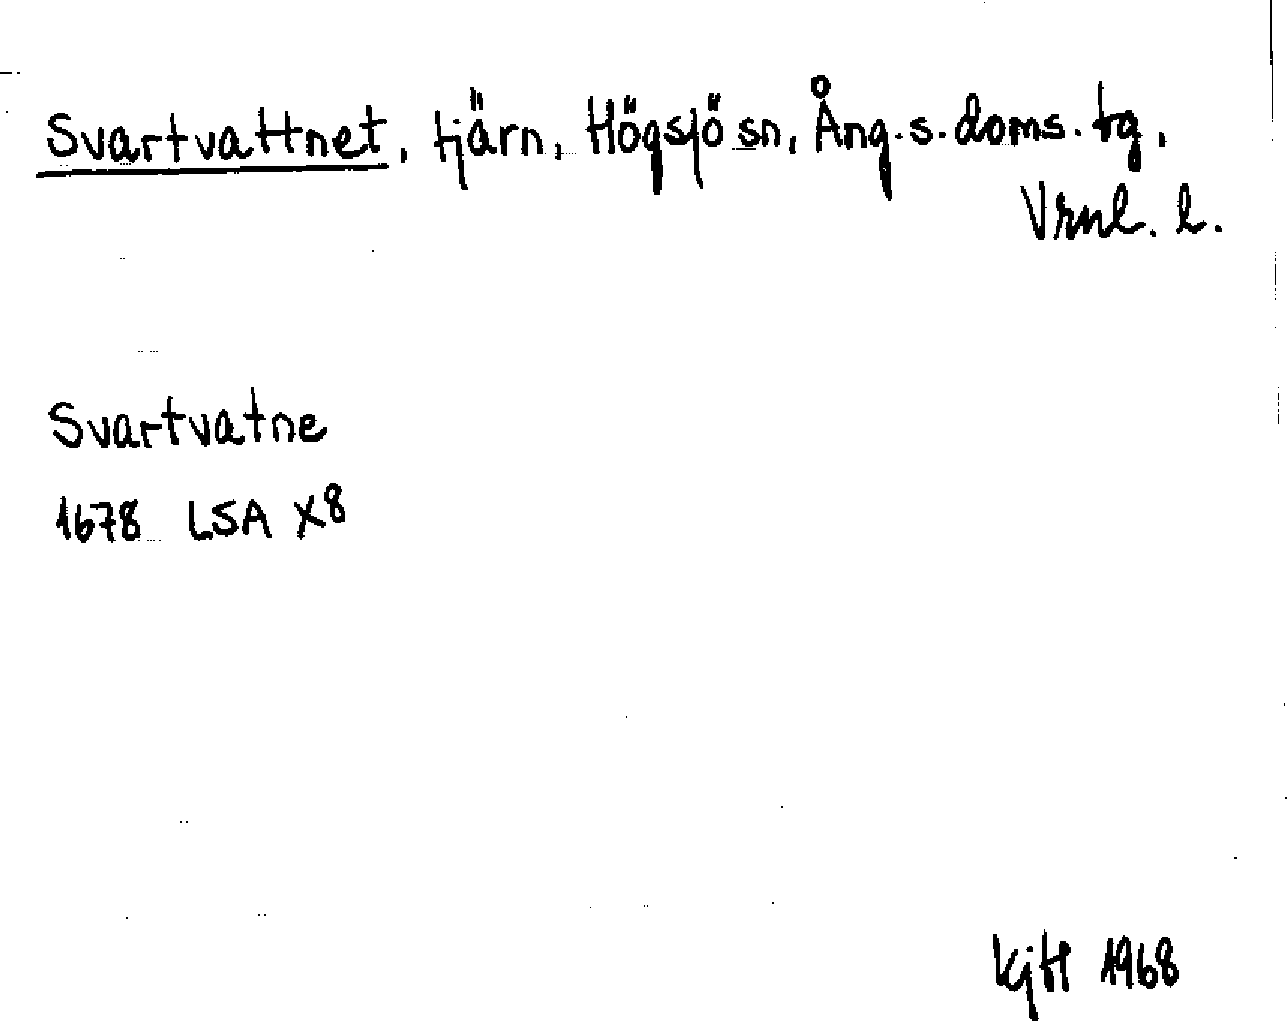 Svartvattnet, tjärn, Högsjö sn, Ång. s. doms. tg,
Vrnl. l.
Svartvatne
1678 LSA X8
KjH 1968